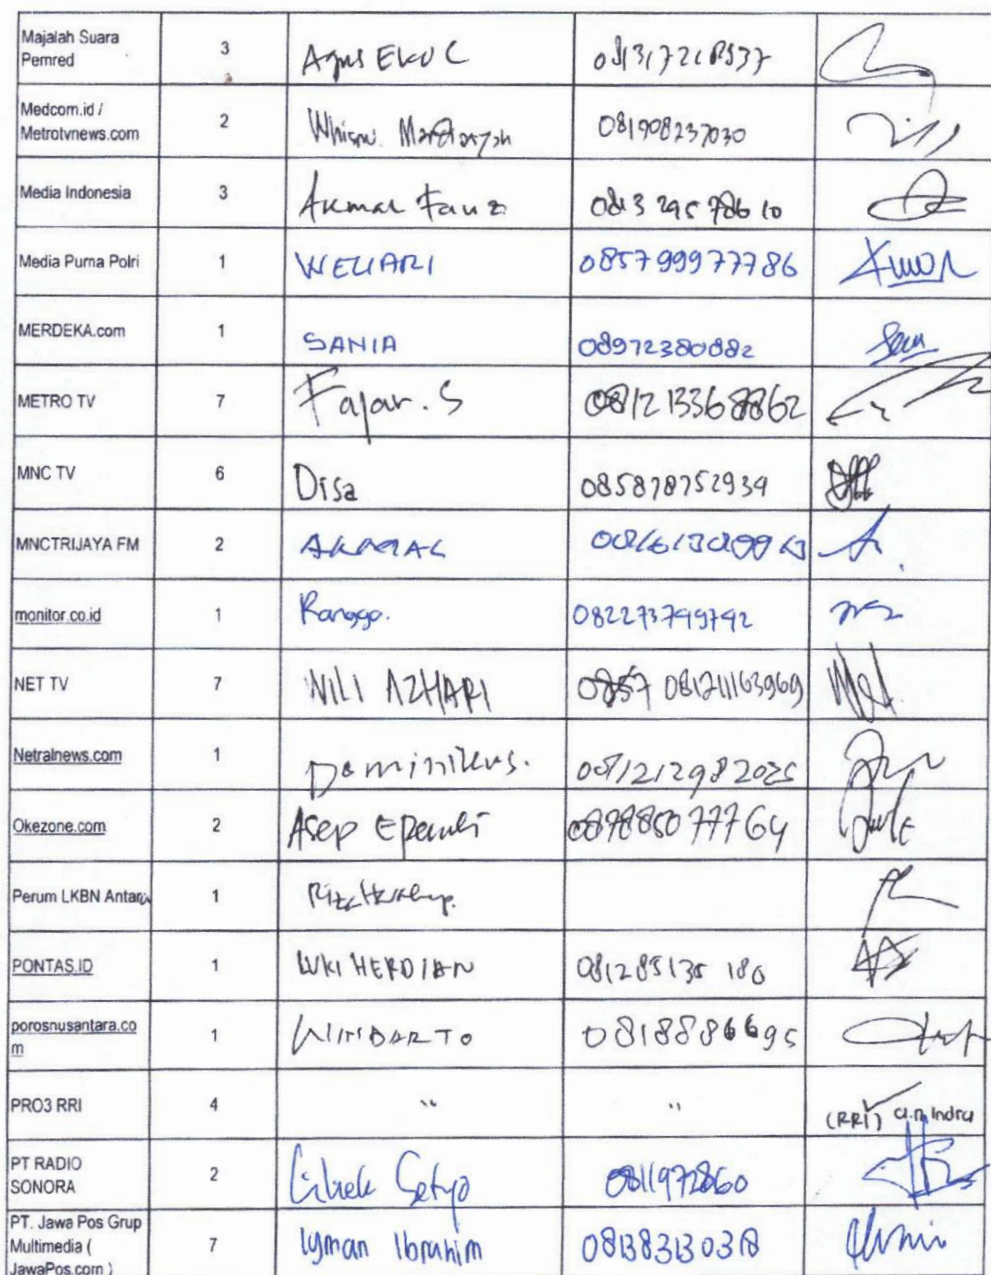 Majalah Suara Pemred 3 Agus EKO C
Medcom.id / Metrotvnews.com 2 081908237030
Media Indonesia 3 Akmal Fauz 0813 295 786 10
Media Purna Polri 1 WELIARI 0857 99977786
MERDEKA.com 1 SANIA 08972380882
METRO TV 7 Fajar.S 0812 13368862
MNC TV 6 Disa 085878752934
MNCTRIJAYA FM 2 AKMAL
monitor.co.id 1 Rangga. 082273749742
NET TV 7 WILI AZHARI 0857 081211163969
Netralnews.com 1 Dominikus. 081212982025
Okezone.com 2 Asep
Perum LKBN Antara 1
PONTAS.ID 1 LUKI HERDIAN 081285135 180
porosnusantara.co
m 1 WINDARTO 0818886695
PRO3 RRI 4 " " (RRI) a.n Indra
PT RADIO
SONORA 2 Setyo 0811972860
PT. Jawa Pos Grup
Multimedia (
JawaPos.com ) 7 lyman Ibrahim 081383130318